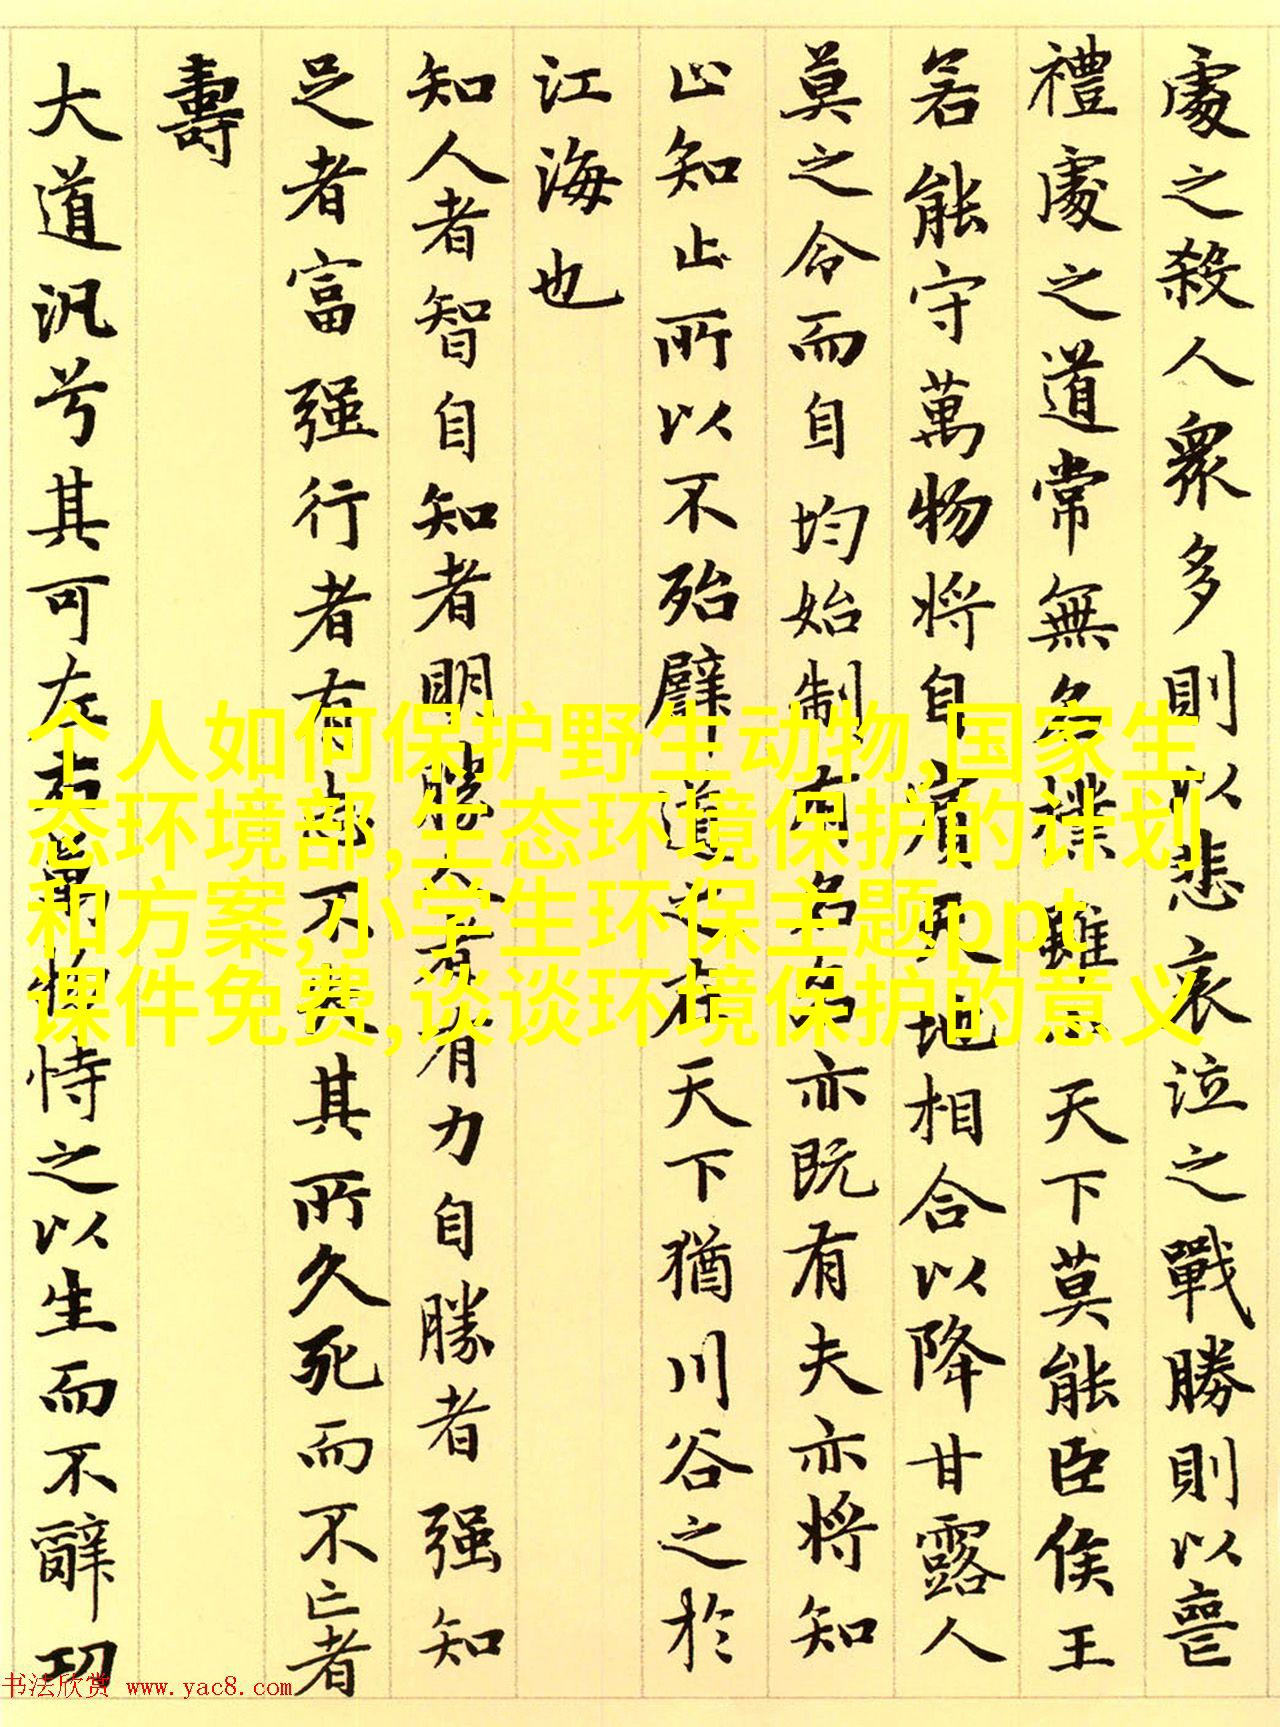 處之殺人眾多則以悲哀泣之戰勝則以喪
禮處之道常無名樸雖小天下莫能臣侯王
若能守萬物將自賓天地相合以降甘露人
莫之令而自均始制有名名亦既有夫亦將知
止知止所以不殆譬道之在天下猶川谷之於
江海也
知人者智自知者明勝人者有力自勝者强知
足者富强行者有志不失其所久死而不亡者
壽
大道汎兮其可左右萬物恃之以生而不辭功
个人如何保护野生动物,国家生
态环境部,生态环境保护的计划
和方案,小学生环保主题ppt
课件免费,谈谈环境保护的意义
书法欣赏 www.yac8.com